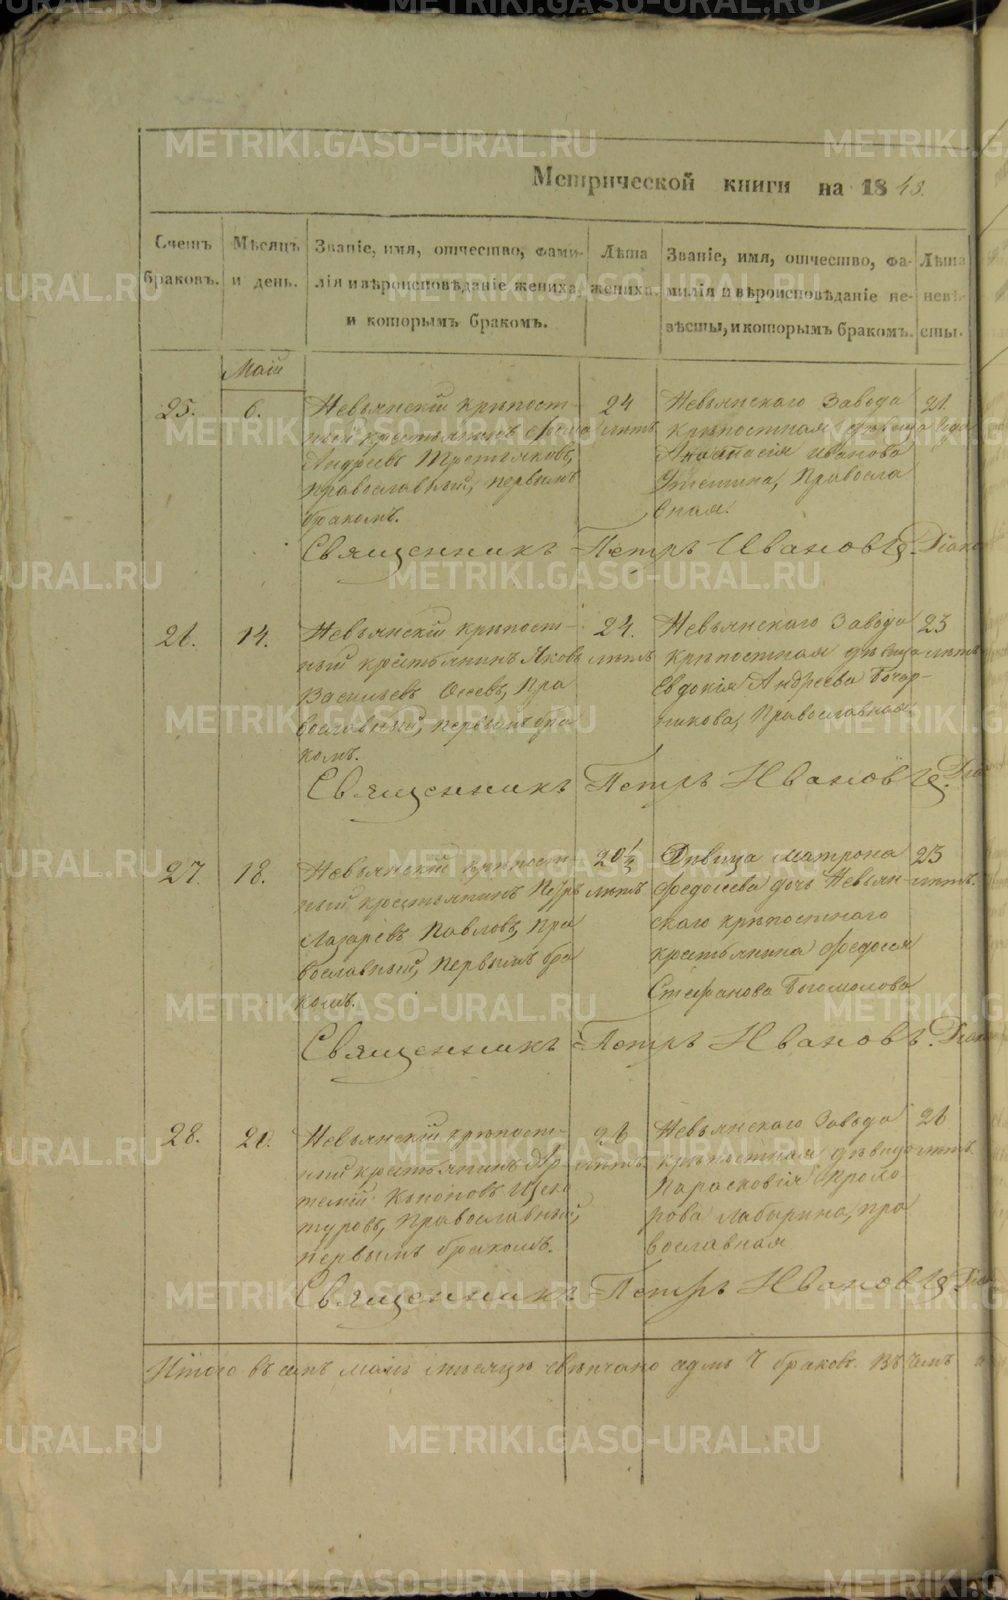 METRIKI.GASO-URAL.RU
Метрической книги на 1848.
Счетъ браковъ.
Мѣсяцъ и день.
Званіе, имя, отчество, фами-
лія и вѣроисповѣданіе жениха,
и которымъ бракомъ.
Лѣта
жениха.
Званіе, имя, отчество, фа-
милія и вѣроисповѣданіе не-
вѣсты, и которымъ бракомъ.
Лѣта
невѣ-
сты.
Маій
25.
6.
Невьянскій крѣпост-
ный крестьянинъ
Андреевъ Третьяковъ,
православный, первымъ
бракомъ.
24
лѣтъ
Невьянскаго Завода
крѣпостная дѣвица
Иванова
Правосла
вная.
21.
Священникъ Петръ Ивановъ. Діако
14.
Невьянскій крѣпост-
ный крестьянинъ Яковъ
Васильевъ Пра
вославный, первымъ бра
комъ.
24.
лѣтъ
Невьянскаго Завода
крѣпостная дѣвица
Евдокія Андреева Бочар-
никова, Православная
23
лѣтъ
Священникъ Петръ Ивановъ. Діа
27.
18.
Невьянскій крѣпост-
ный крестьянинъ Петръ
Лазаревъ Павловъ, Пра
вославный, первымъ бра
комъ.
20½
лѣтъ
Дѣвица Матрона
Федосеева дочь Невьян-
скаго крѣпостнаго
крестьянина Федосея
Стефанова Богомолова
23
лѣтъ.
Священникъ Петръ Ивановъ. Діак
28.
Невьянскій крѣпост-
ный крестьянинъ Ар
темій
туровъ, Православный,
первымъ бракомъ.
лѣтъ
Невьянскаго Завода
крѣпостная дѣвица
Парасковія Фроло
рова пра
вославная
лѣтъ
Священникъ Петръ Ивановъ Діа
Итого въ маіѣ мѣсяцѣ свѣнчано браковъ. Въ чемъ